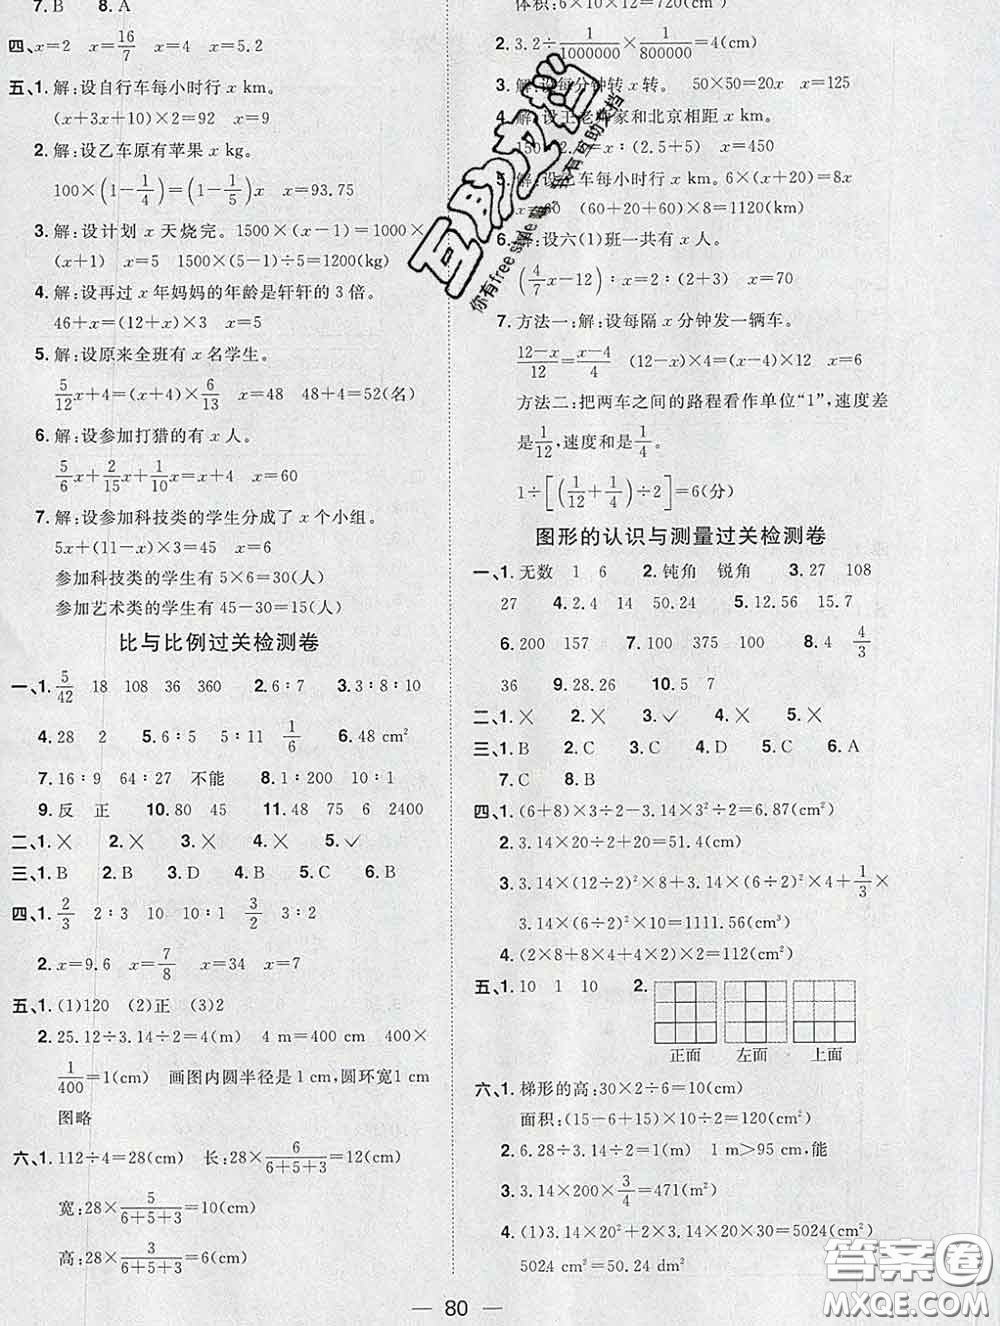 7. B　8. A
四、x=2　x=16/7　x=4　x=5.2
五、1. 解:设自行车每小时行 x km。
(x+3x+10)×2=92　x=9
2. 解:设乙车原有苹果 x kg。
100×(1−1/4)=(1−1/5)x　x=93.75
3. 解:设计划 x 天烧完。1500×(x−1)=1000×
(x+1)　x=5　1500×(5−1)÷5=1200(kg)
4. 解:设再过 x 年妈妈的年龄是轩轩的 3 倍。
46+x=(12+x)×3　x=5
5. 解:设原来全班有 x 名学生。
5/12x+4=(x+4)×6/13　x=48　48+4=52(名)
6. 解:设参加打猎的有 x 人。
5/6x+2/15x+1/10x=x+4　x=60
7. 解:设参加科技类的学生分成了 x 个小组。
5x+(11−x)×3=45　x=6
参加科技类的学生有 5×6=30(人)
参加艺术类的学生有 45−30=15(人)
比与比例过关检测卷
一、1. 5/42　18　108　36　360　2. 6∶7　3. 3∶8∶10
4. 28　2　5. 6∶5　5∶11　1/6　6. 48 cm²
7. 16∶9　64∶27　不能　8. 1∶200　10∶1
9. 反　正　10. 80　45　11. 48　75　6　2400
二、1. ×　2. ×　3. ×　4. ×　5. ✓
三、1. B　2. B　3. D　4. B　5. C　6. B
四、1. 2/3　2∶3　10　10∶1　3/2　3∶2
2. x=9.6　x=7/8　x=34　x=7
五、1. (1)120　(2)正　(3)2
2. 25.12÷3.14÷2=4(m)　4 m=400 cm　400×
1/400=1(cm)　画图内圆半径是 1 cm,圆环宽1 cm
图略
六、1. 112÷4=28(cm)　长:28×6/(6+5+3)=12(cm)
宽:28×5/(6+5+3)=10(cm)
高:28×3/(6+5+3)=6(cm)
体积:6×10×12=720(cm³)
2. 3.2÷1/1000000×1/800000=4(cm)
3. 解:设每分钟转 x 转。　50×50=20x　x=125
4. 解:设王老师家和北京相距 x km。
150∶2.5=x∶(2.5+5)　x=450
5. 解:设乙车每小时行 x km。6×(x+20)=8x
x=60　(60+20+60)×8=1120(km)
6. 解:设六(1)班一共有 x 人。
(4/7x−12)∶x=2∶(2+3)　x=70
7. 方法一:解:设每隔 x 分钟发一辆车。
(12−x)/12=(x−4)/4　(12−x)×4=(x−4)×12　x=6
方法二:把两车之间的路程看作单位“1”,速度差
是1/12,速度和是1/4。
1÷[(1/12+1/4)÷2]=6(分)
图形的认识与测量过关检测卷
一、1. 无数　1　6　2. 钝角　锐角　3. 27　108
27　4. 2.4　14　50.24　5. 12.56　15.7
6. 200　157　7. 100　375　100　8. 4　4/3
36　9. 28.26　10. 5　7
二、1. ×　2. ×　3. ✓　4. ×　5. ×
三、1. B　2. C　3. C　4. D　5. D　6. A
7. C　8. B
四、1. (6+8)×3÷2−3.14×3²÷2=6.87(cm²)
2. 3.14×20÷2+20=51.4(cm)
3. 3.14×(12÷2)²×10−3.14×(6÷2)²×4+1/3×
3.14×(6÷2)²×10=1111.56(cm³)
4. (2×8+8×4+4×2)×2=112(cm²)
五、1. 10　1　10　2.
正面　左面　上面
六、1. 梯形的高:30×2÷6=10(cm)
面积:(15−6+15)×10÷2=120(cm²)
2. 6.28÷3.14÷2=1(m)　1 m>95 cm,能
3. 3.14×200×3/4=471(m²)
4. (1)3.14×20²+2×3.14×20×30=5024(cm²)
5024 cm²=50.24 dm²
80
互助文档
你有free style 嘛,我有互助文档
答案圈
MXQE.COM